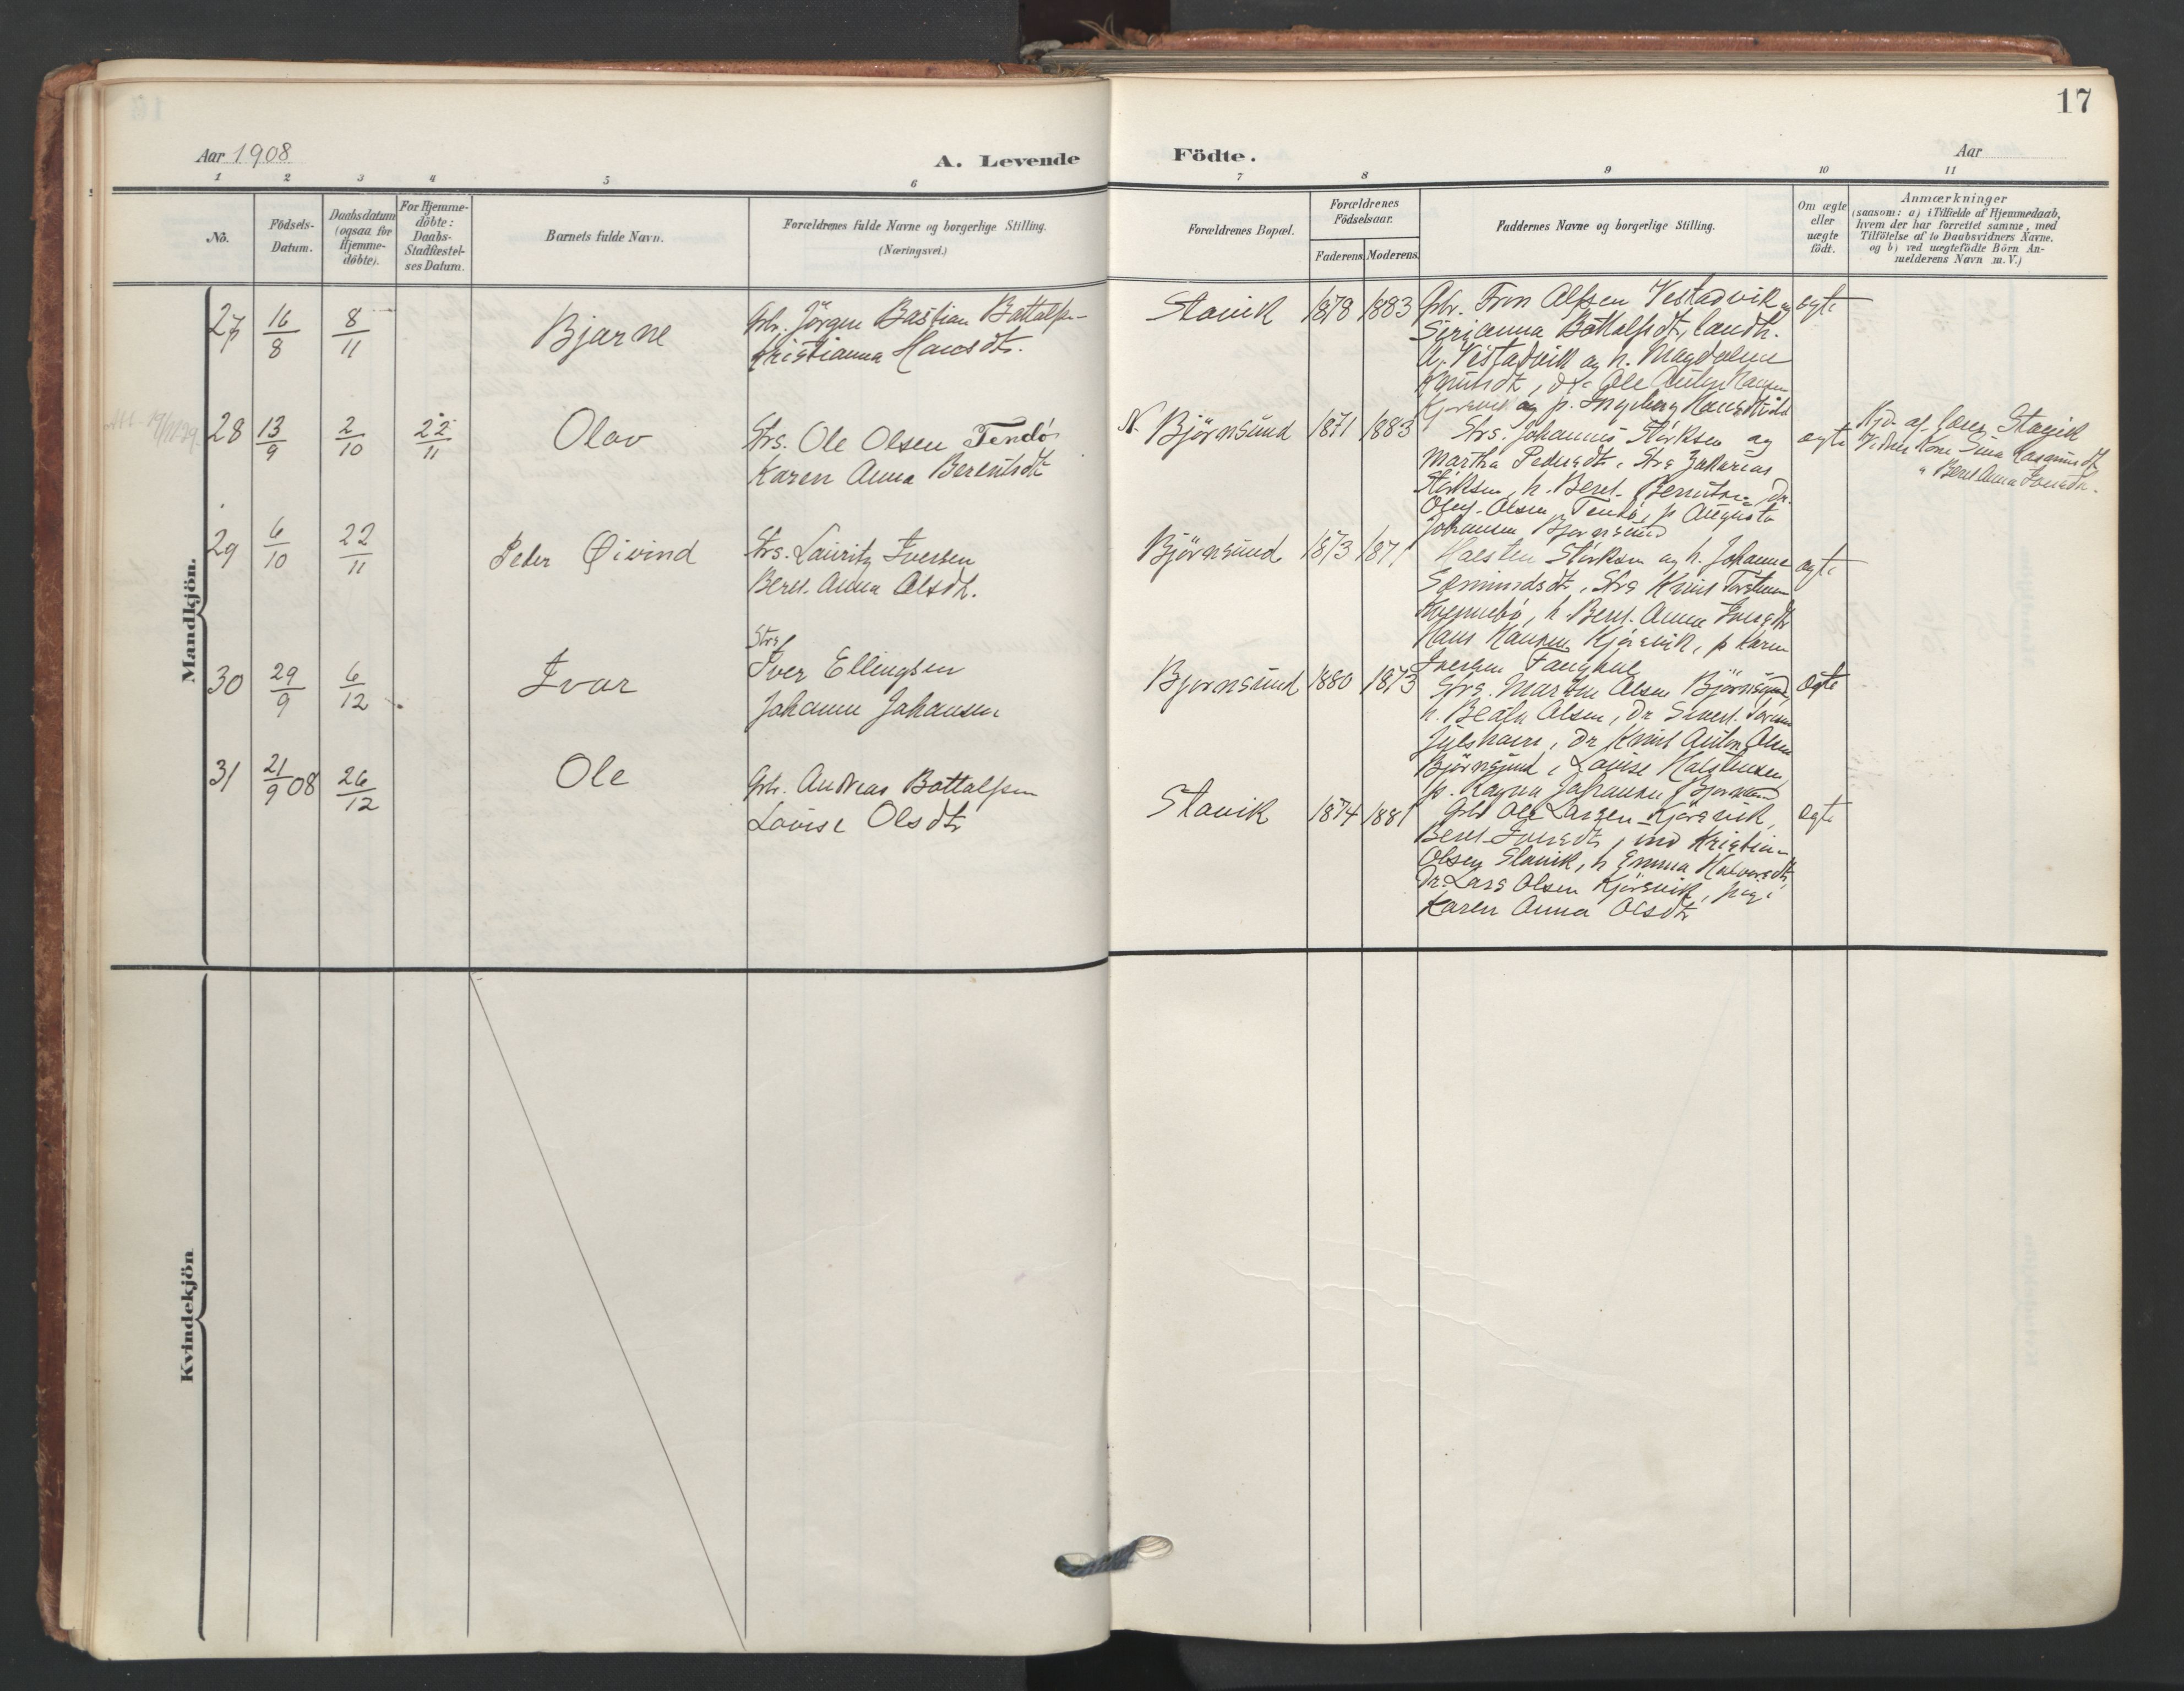 17
Aar 1908
A. Levende
Födte.
Aar
1 2 3 4 5 6 7 8 9 10 11
Nô.
Födsels-
Datum.
Daabsdatum
(ogsaa for
Hjemme-
döbte).
For Hjemme-
döbte:
Daabs-
Stadfæstel-
ses Datum.
Barnets fulde Navn.
Forældrenes fulde Navne og borgerlige Stilling.
(Næringsvei.)
Forældrenes Bopæl.
Forældrenes
Födselsaar.
Faderens Moderens
Faddernes Navne og borgerlige Stilling.
Om ægte
eller
uægte
födt.
Anmærkninger
(saasom: a) i Tilfælde af Hjemmedaab,
hvem der har forrettet samme, med
Tilföielse af to Daabsvidners Navne,
og b) ved uægtefödte Börn An-
melderens Navn m. V.)
Mandkjön.
27 16/8 8/11 Bjarne
Gbr. Jörgen Bastian Bottolfsen
Kristianna Hansdtr.
Stavik 1878 1883
Gbr. Alfsen Vestadvik og
Serianna Bottolfsdtr, Candth.
A. Vestadvik og h. Magdalene
Knutsdtr, Dr Ole Anton Hansen
Kjörsvik og p. Ingeborg
ægte
28 13/9 2/10 22/11 Olav
Strs. Ole Olsen Tendö
Karen Anna Berentsdtr
N. Björnsund 1871 1883
Strs. Johannes Störksen og
Martha Pedersdtr, Strs Zakarias
Störksen, h. Beret Dr.
Olsen Tendö, p Augusta
Johansen Bjornsund
ægte
Hjd. af Stavik
Vidner Kone Sina Rasmusdtr
" Beret Anna Iversdtr.
29 6/10 22/11 Peder Øivind
Strs. Lauritz Iversen
Beret Anna Olsdtr.
Björnsund 1873 1871
Halsten Störksen og h. Johanne
Sæmundsdtr, Strs Knut Torstensen
h. Beret Anna Iversdtr
Hans Hansen Kjörsvik, p Karen
Iversen
ægte
30 29/9 6/12 Ivar
Strs
Iver Ellingsen
Johanne Johansen
Bjornsund 1880 1873
Strs. Martin Olsen Björnsund,
h. Beata Olsen, Dr Sivert Iversen
Julshavn, Dr Knut Anton Olsen
Björnsund, Lovise Halstensen,
p. Ragna Johansen Bjornsund
ægte
31 21/9 08 26/12 Ole
Gbr. Andreas Bottolfsen
Lovise Olsdtr
Stavik 1874 1881
Gbr Ole Larsen Kjörsvik,
Beret Iversdtr, ind Kristian
Olsen Stavik, h Emma Halvorsdtr,
Dr. Lars Olsen Kjörsvik, pige
Karen Anna Olsdtr
ægte
Kvindekjön